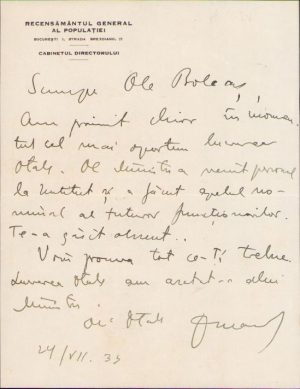 RECENSĂMÂNTUL GENERAL
AL POPULAȚIEI
BUCUREȘTI I, STRADA BREZOIANU, 21
CABINETUL DIRECTORULUI
Scumpe
Am primit chiar în momen-
tul cel mai oportun lucrarea
Dtale. Dl Ministru a venit personal
la Institut și a făcut apelul no-
minal al tuturor funcționarilor.
Te-a găsit absent..
Voiu tot ce-Ți trebue.
Lucrarea Dtale am arătat-o dlui
Ministru.
Al Dtale
24/VII. 35